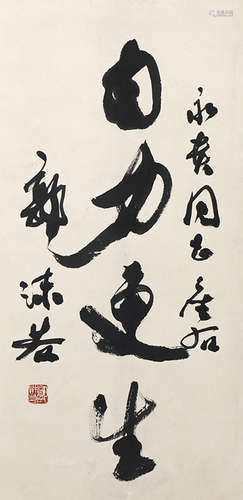 永贵同志座右
自力更生
郭沫若